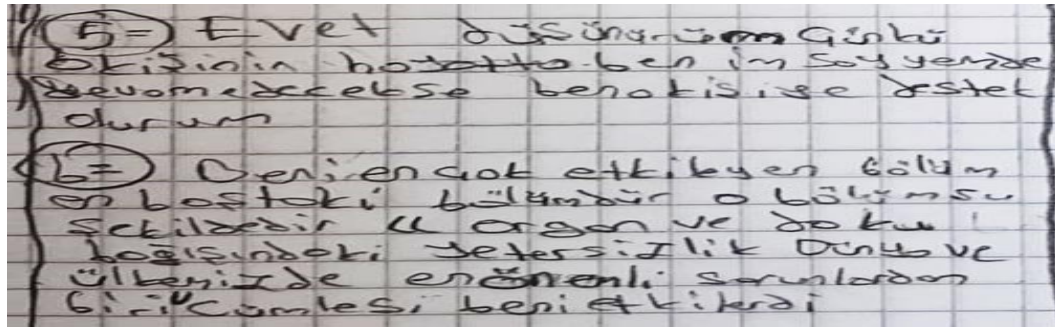 5=) Evet düşünürüm Çünkü
o kişinin hayatta ben im sayemde
devam edecekse ben o kişiye destek
olurum
6=) Beni en çok etkileyen bölüm
en baştaki bölümdür o bölüm şu
şekildedir " organ ve doku
bağışındaki yetersizlik Dünya ve
ülkemizde en önemli sorunlardan
biri" Cümlesi beni etkiledi